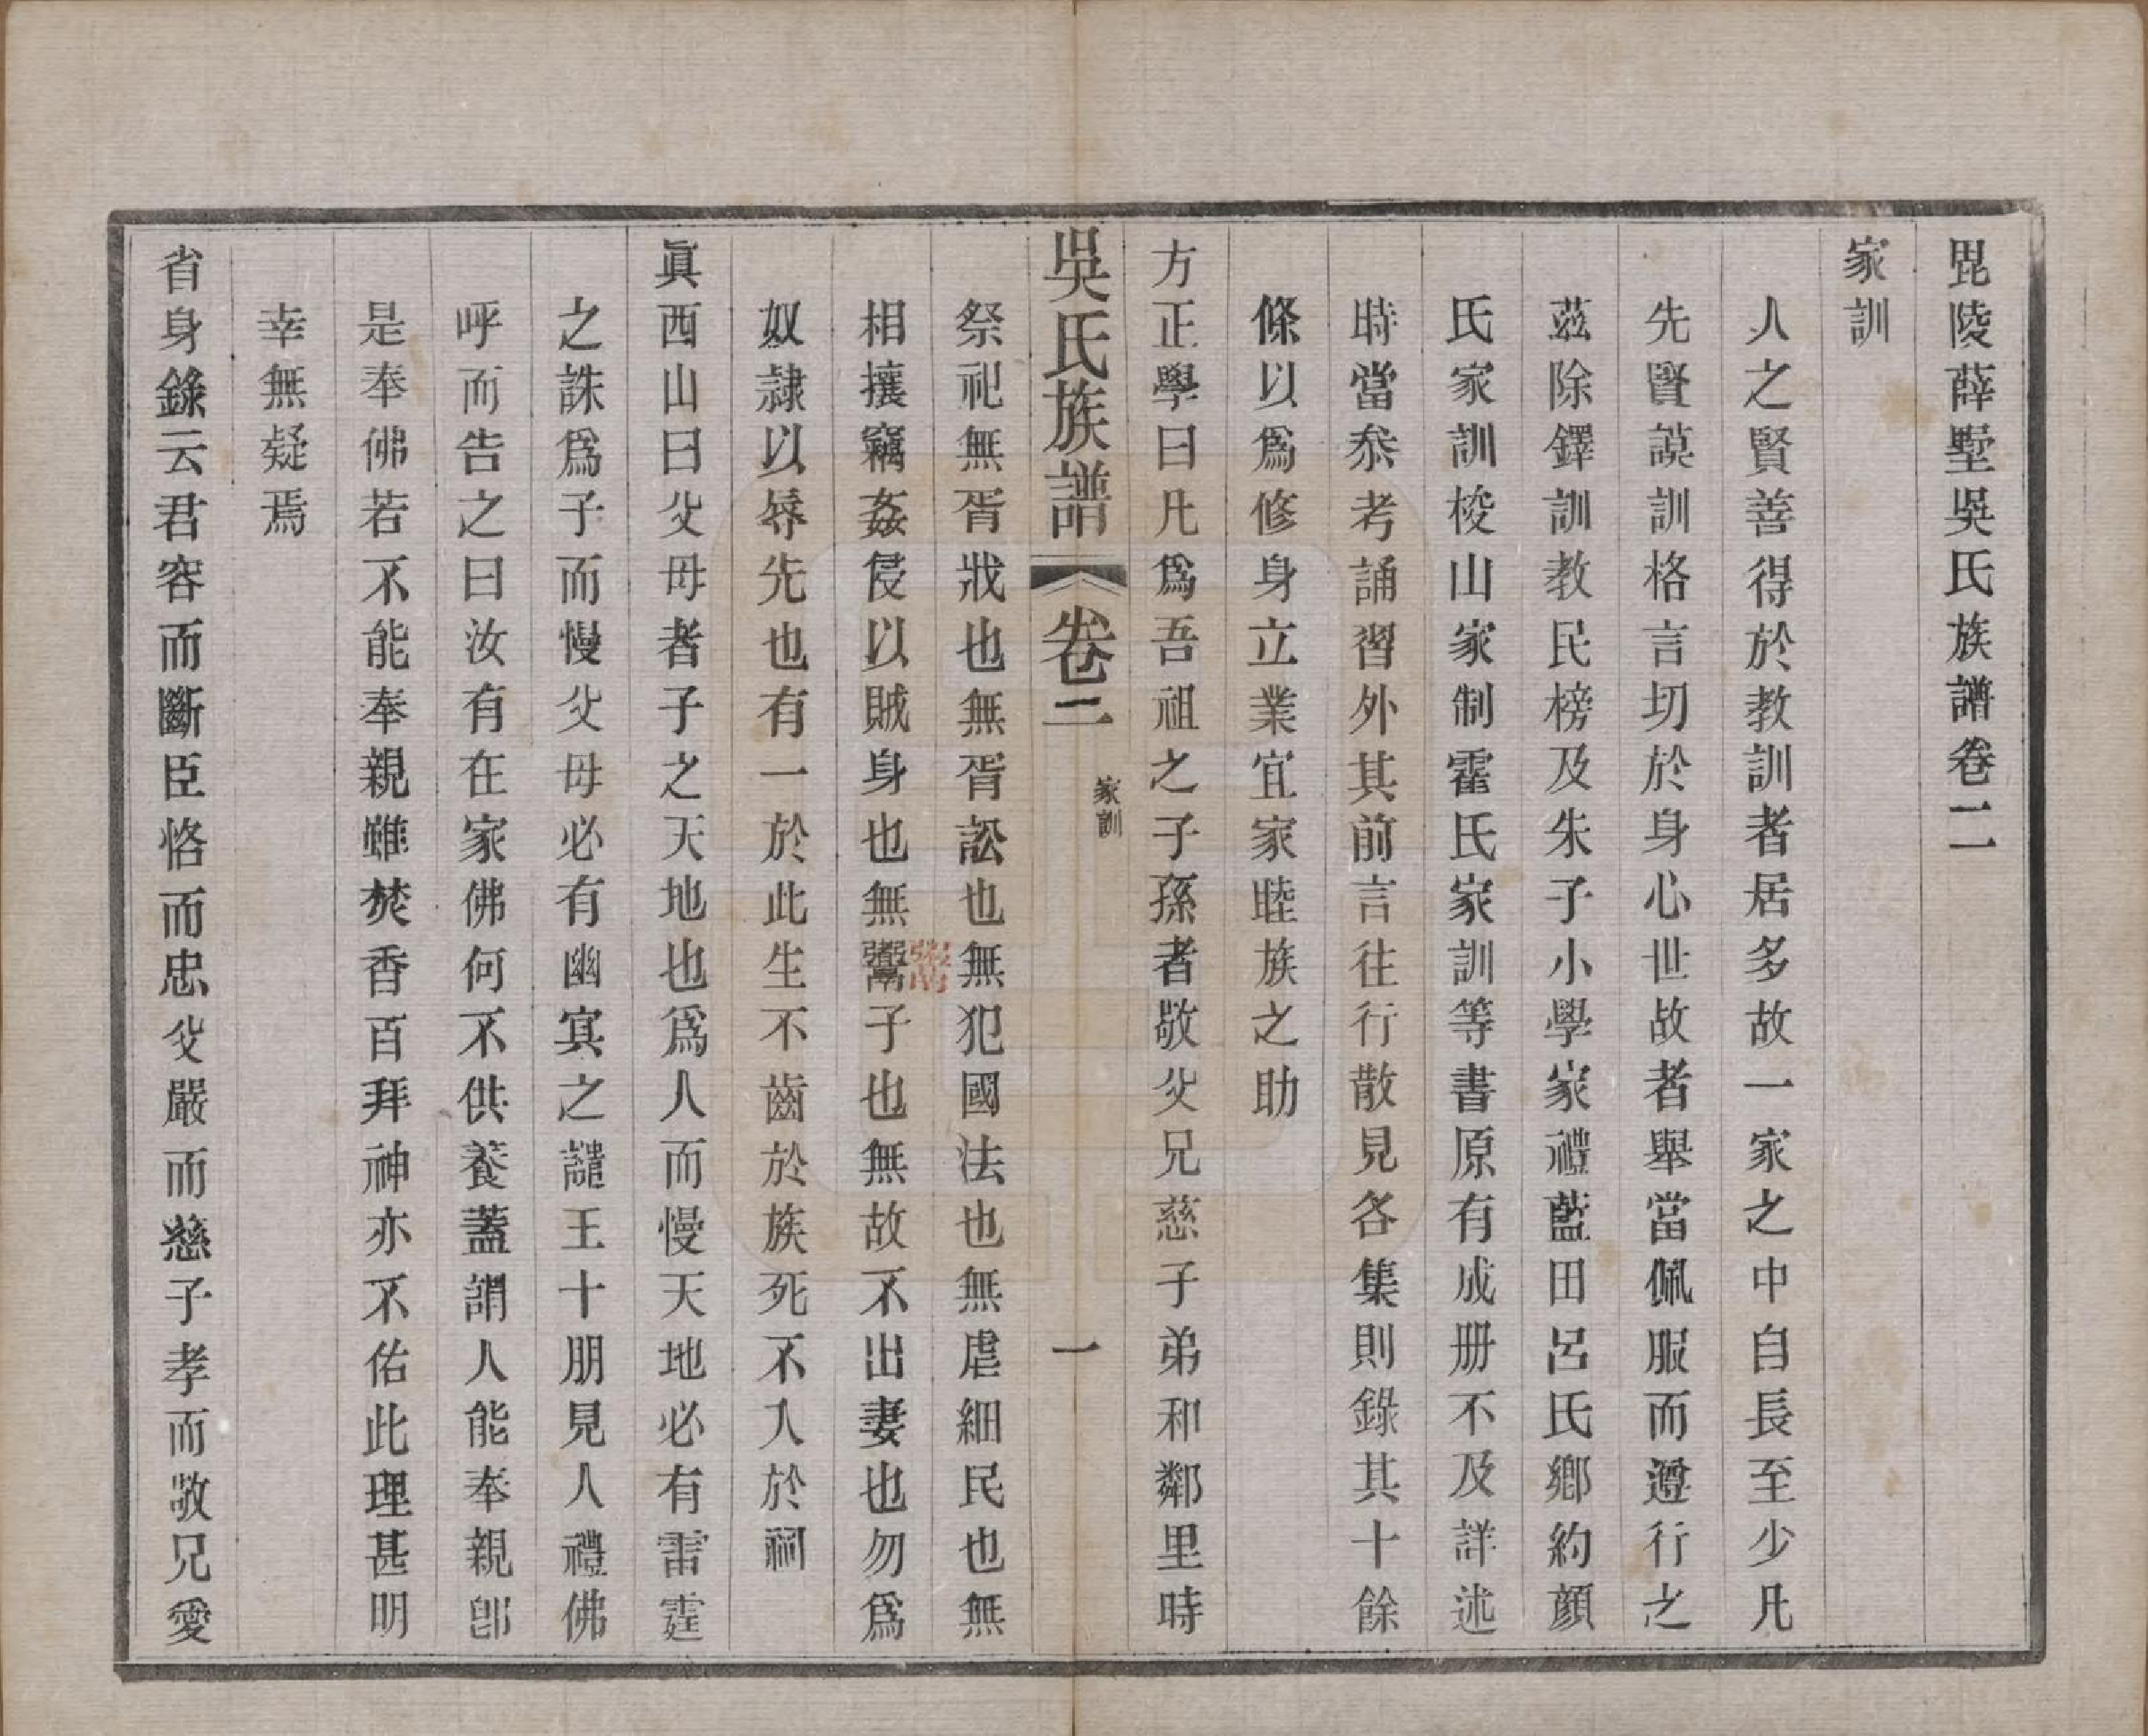 毘陵薛墅吳氏族譜卷二
家訓
人之賢善得於教訓者居多故一家之中自長至少凡
先賢謨訓格言切於身心世故者舉當佩服而遵行之
茲除鐸訓教民榜及朱子小學家禮藍田呂氏鄉約顏
氏家訓梭山家制霍氏家訓等書原有成册不及詳述
時當叅考誦習外其前言往行散見各集則錄其十餘
條以爲修身立業宜家睦族之助
方正學曰凡爲吾祖之子孫者敬父兄慈子弟和鄰里時
吳氏族譜 卷二 家訓 一
祭祀無胥戕也無胥訟也無犯國法也無虐細民也無
相攘竊姦侵以賊身也無鬻子也無故不出妻也勿爲
鬻
奴隷以辱先也有一於此生不齒於族死不入於祠
眞西山曰父母者子之天地也爲人而慢天地必有雷霆
之誅爲子而慢父母必有幽冥之譴王十朋見人禮佛
呼而告之曰汝有在家佛何不供養蓋謂人能奉親卽
是奉佛若不能奉親雖焚香百拜神亦不佑此理甚明
幸無疑焉
省身錄云君容而斷臣恪而忠父嚴而慈子孝而敬兄愛